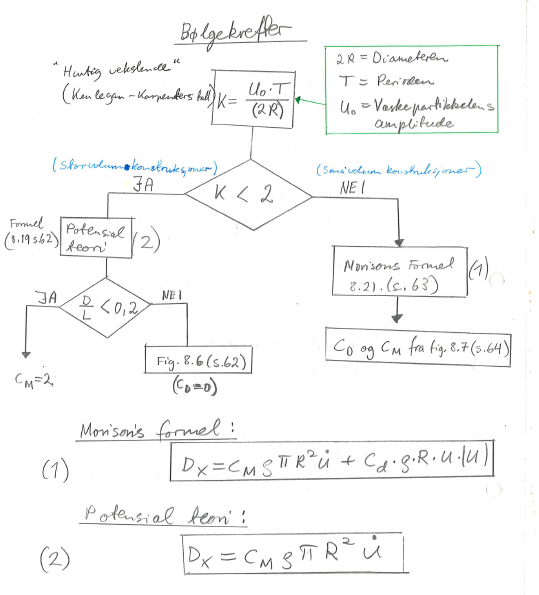 Bølgekrefter
"Hurtig vekslende"
(Keulegan-Karpenters tall)
K = U₀·T / (2R)
2R = Diameteren
T = Perioden
U₀ = Væskepartikkelens
amplitude
(storvolum konstruksjoner)
JA
K < 2
(småvolum konstruksjoner)
NEI
Formel
(8.19 s.62)
Potensial
teori
(2)
Morisons Formel
8.21. (s. 63)
(1)
JA
D/L < 0,2
NEI
C_M = 2
Fig. 8.6 (s.62)
(C_D = 0)
C_D og C_M fra fig. 8.7 (s.64)
Morison's formel:
(1)
D_x = C_M ρ π R² u̇ + C_d · ρ · R · u · |u|
Potensial teori:
(2)
D_x = C_M ρ π R² u̇